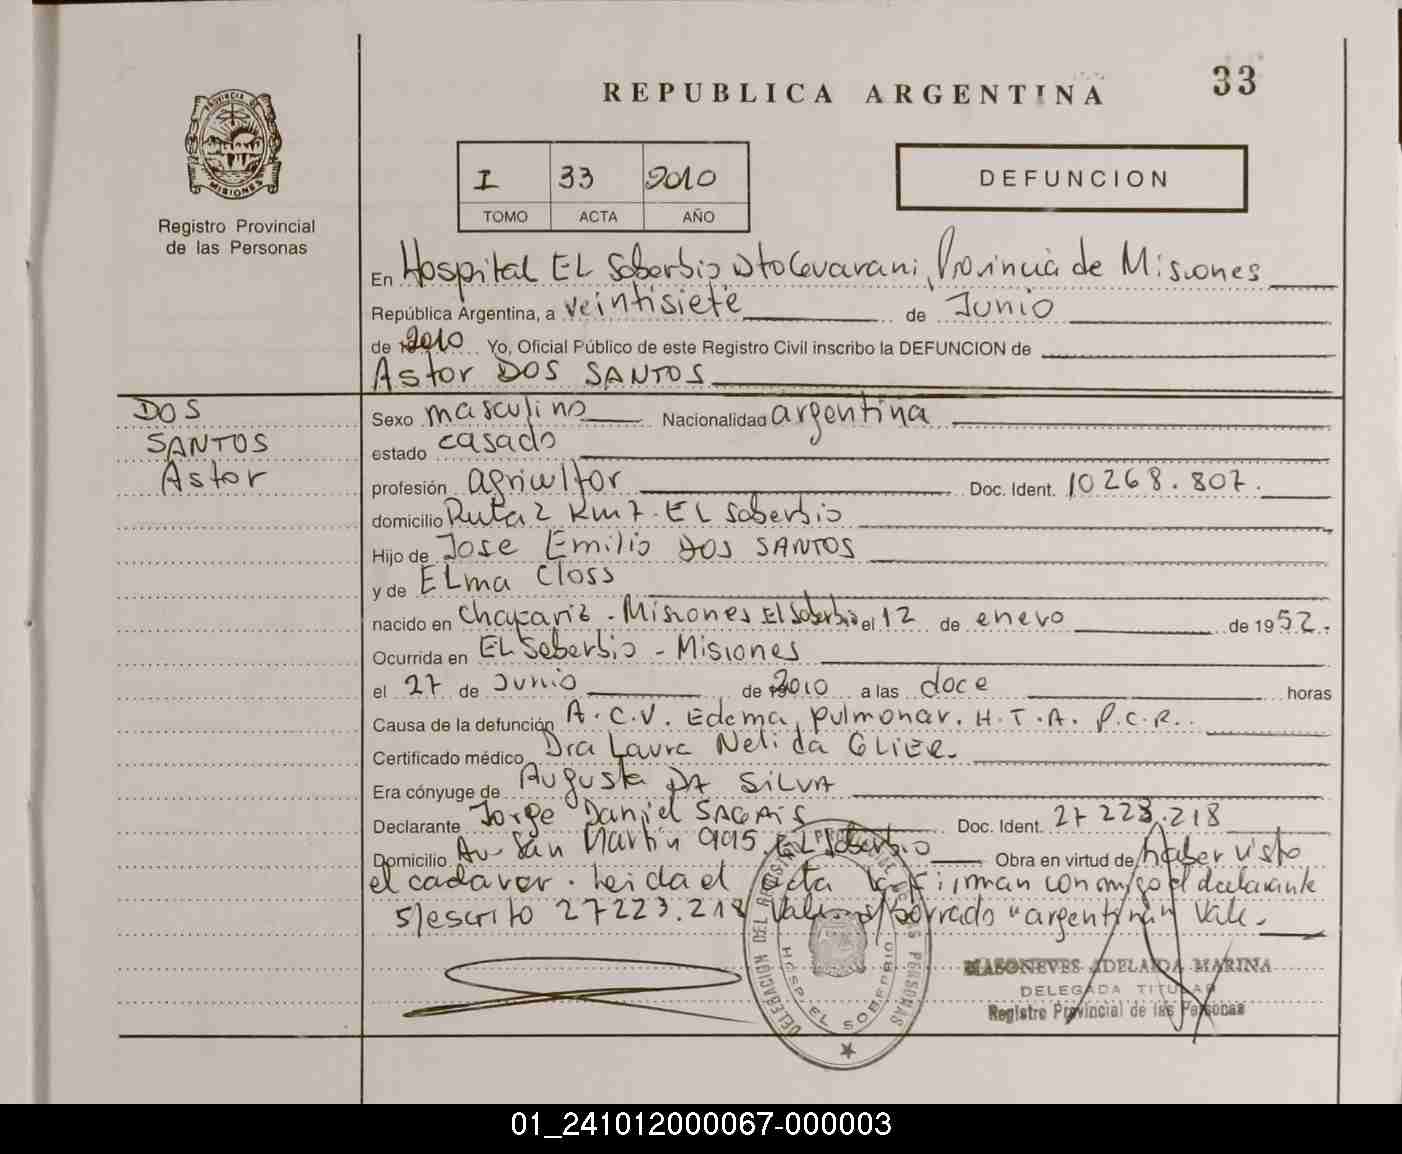 33
REPUBLICA ARGENTINA
PROVINCIA DE
MISIONES
Registro Provincial
de las Personas
I 33 2010
TOMO ACTA AÑO
DEFUNCION
En Hospital EL Soberbio Dto Guarani, Provincia de Misiones
República Argentina, a veintisiete de Junio
de 2010 Yo, Oficial Público de este Registro Civil inscribo la DEFUNCION de
Astor DOS SANTOS
DOS
SANTOS
Astor
Sexo masculino Nacionalidad argentina
estado casado
profesión agricultor Doc. Ident. 10268.807.
domicilio Ruta 2 Km 7. EL Soberbio
Hijo de Jose Emilio DOS SANTOS
y de ELma Closs
nacido en Chafariz - Misiones El Soberbio el 12 de enero de 1952.
Ocurrida en EL Soberbio - Misiones
el 27 de Junio de 2010 a las doce horas
Causa de la defunción A.C.V. Edema pulmonar. H.T.A. P.C.R.
Certificado médico Dra Laura Nelida
Era cónyuge de Augusta DA SILVA
Declarante Jorge Daniel Doc. Ident. 27 223.218
Domicilio Av San Martin 995. EL Soberbio Obra en virtud de haber visto
el cadaver. Leida el acta la firman conmigo el declarante
s/escrito 27223.218 Vale s/borrado "argentina" Vale.
DELEGACION DEL REGISTRO PROVINCIAL DE LAS PERSONAS
HOSP. EL SOBERBIO
MASONEVES ADELAIDA MARINA
DELEGADA TITULAR
Registro Provincial de las Personas
01_241012000067-000003